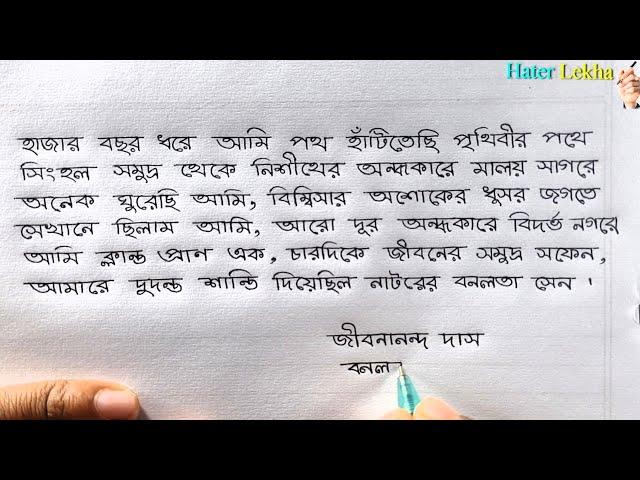 Hater Lekha
হাজার বছর ধরে আমি পথ হাঁটিতেছি পৃথিবীর পথে
সিংহল সমুদ্র থেকে নিশীথের অন্ধকারে মালয় সাগরে
অনেক ঘুরেছি আমি, বিম্বিসার অশোকের ধুসর জগতে
সেখানে ছিলাম আমি, আরো দূর অন্ধকারে বিদর্ভ নগরে
আমি ক্লান্ত প্রাণ এক, চারদিকে জীবনের সমুদ্র সফেন,
আমারে দুদন্ড শান্তি দিয়েছিল নাটোরের বনলতা সেন ।
জীবনানন্দ দাস
বনল